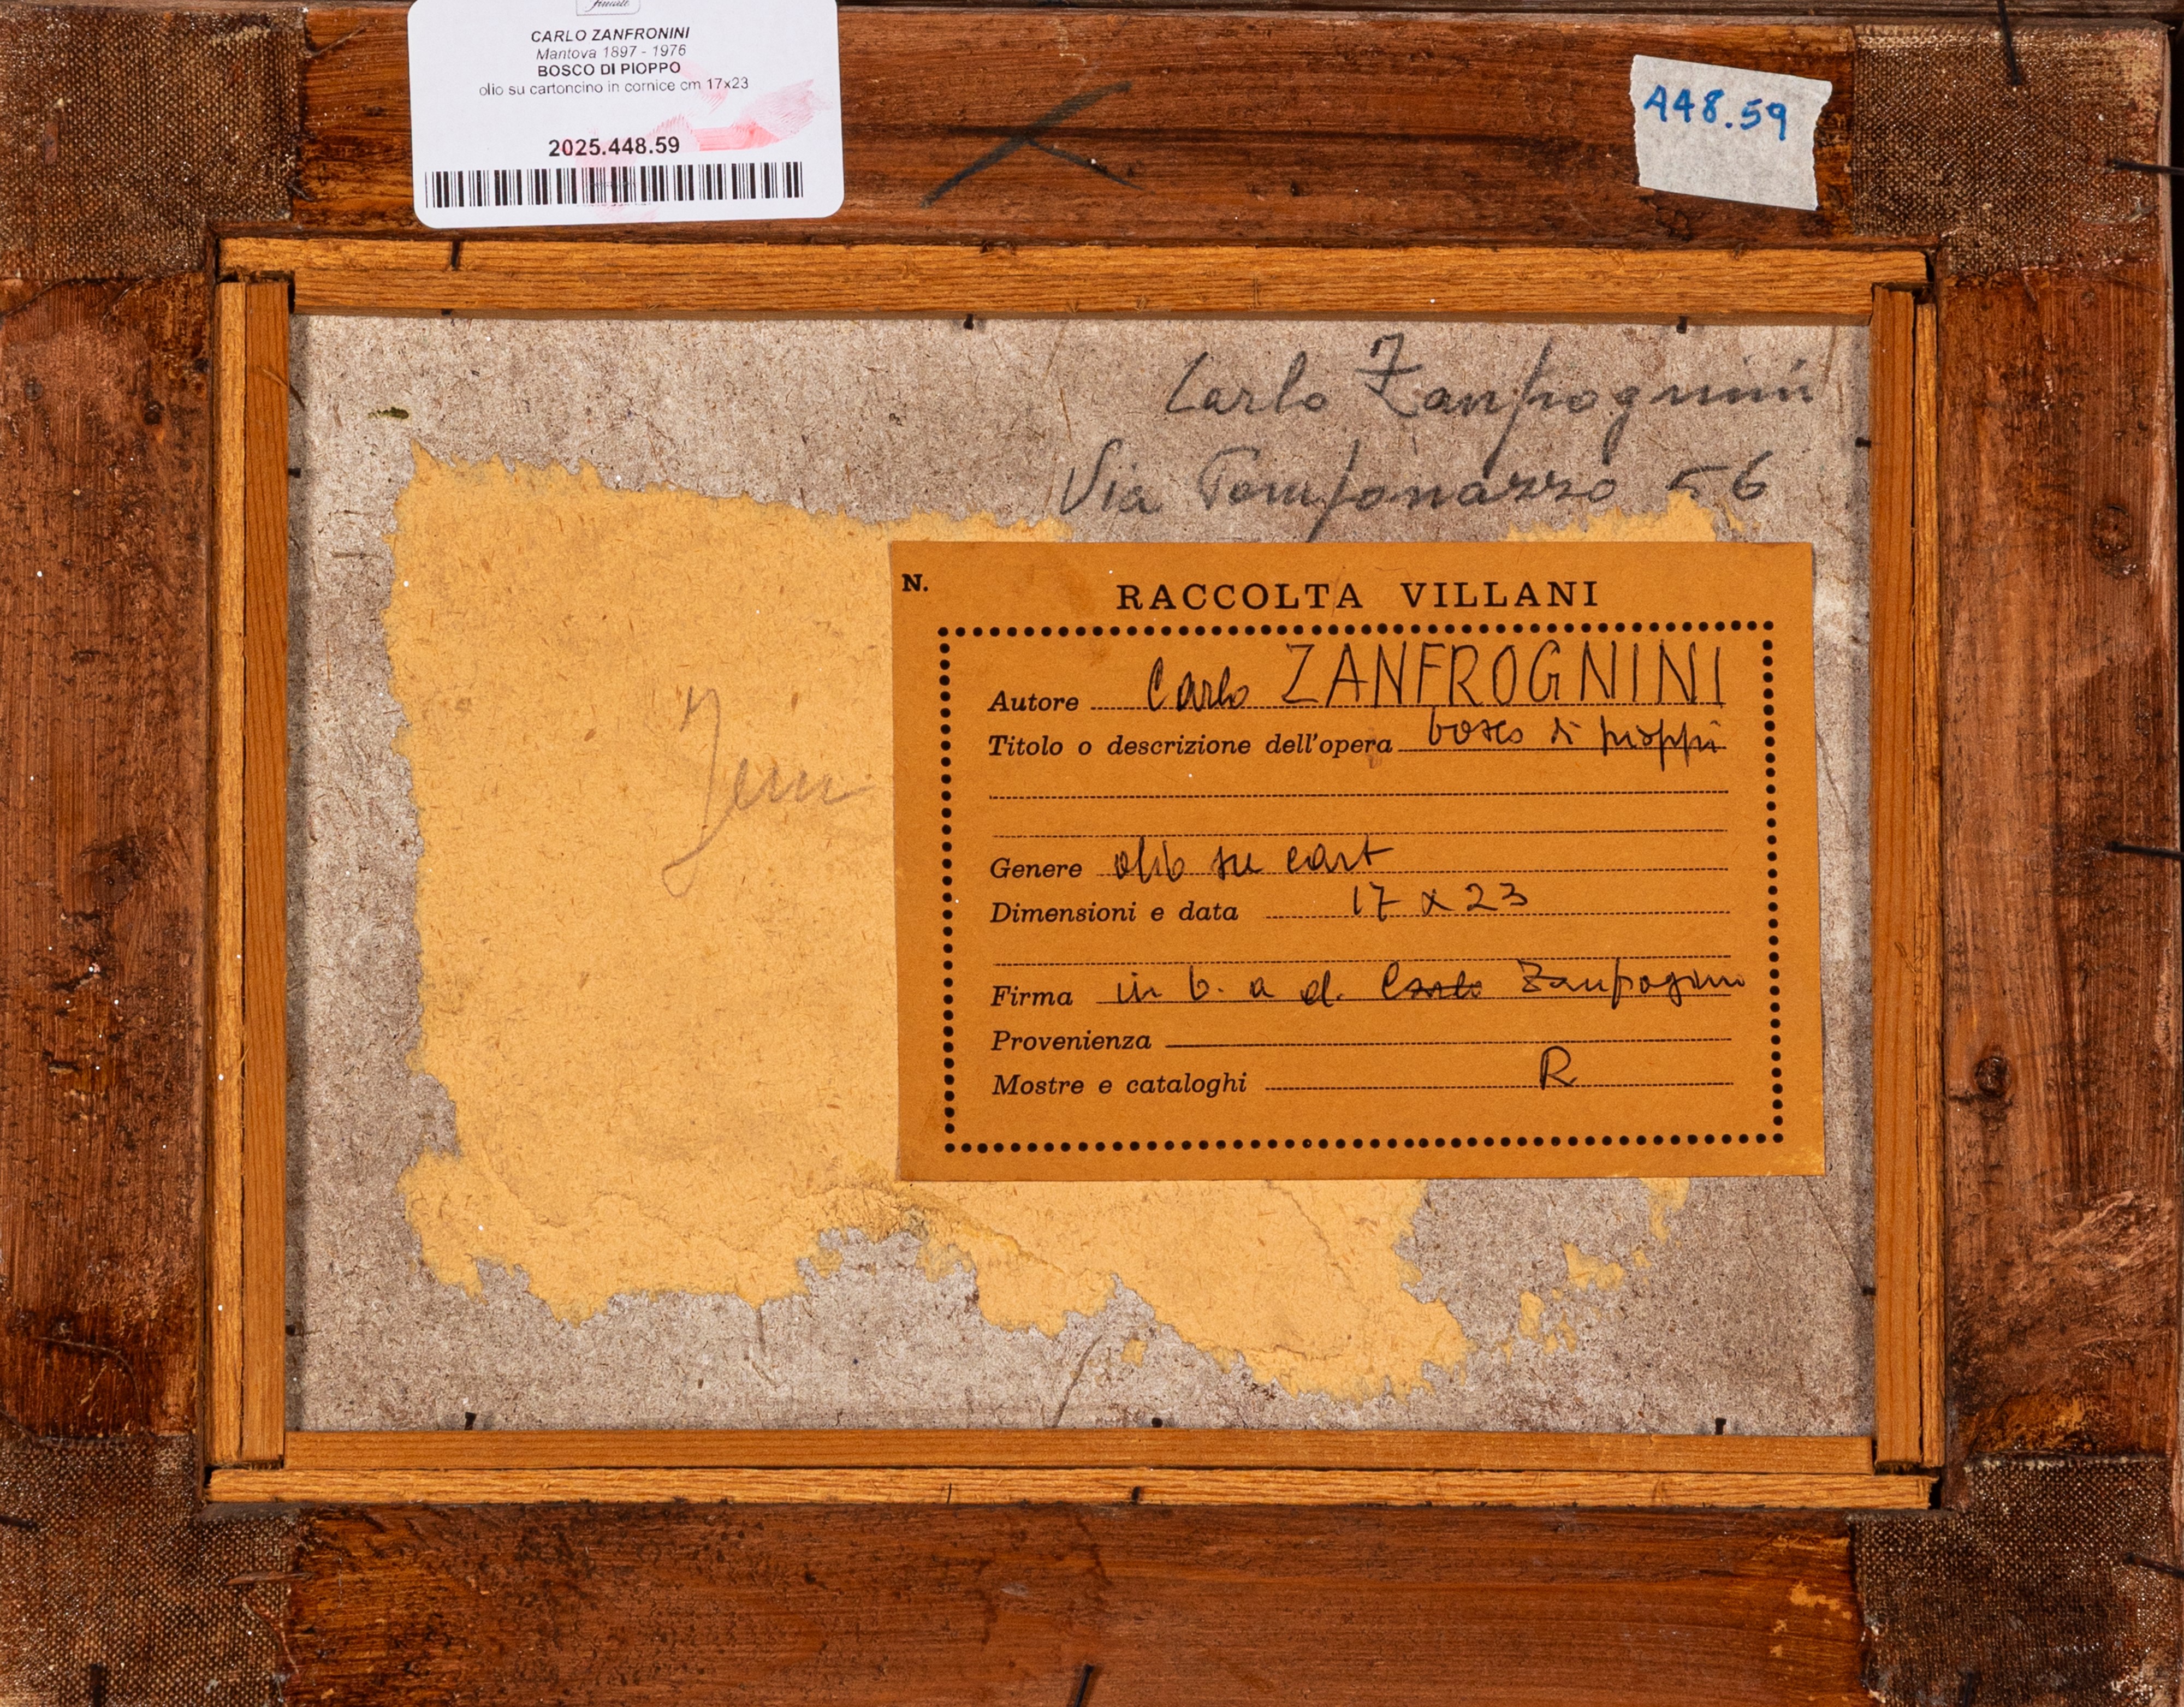 CARLO ZANFRONINI
Mantova 1897 - 1976
BOSCO DI PIOPPO
olio su cartoncino in cornice cm 17x23
2025.448.59
448.59
Carlo Zanfrognini
Via Pomponazzo 56
N.
RACCOLTA VILLANI
Autore Carlo ZANFROGNINI
Titolo o descrizione dell'opera bosco di pioppi
Genere olio su cart
Dimensioni e data 17 x 23
Firma in b. a d. Carlo Zanfrognini
Provenienza
Mostre e cataloghi R